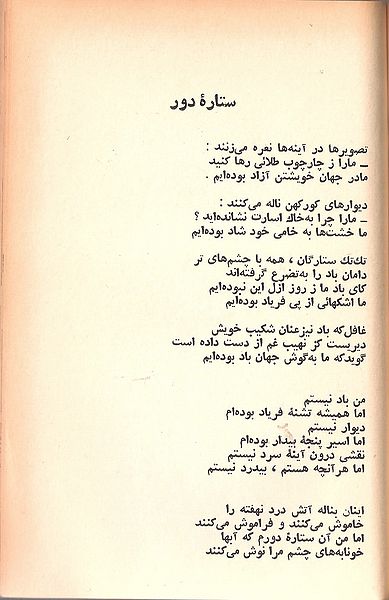 ستارهٔ دور
تصویرها در آینه‌ها نعره می‌زنند :
ــ مارا ز چارچوب طلائی رها کنید
مادر جهان خویشتن آزاد بوده‌ایم .
دیوارهای کورکهن ناله می‌کنند :
ــ مارا چرا به‌خاك اسارت نشانده‌اید ؟
ما خشت‌ها به خامی خود شاد بوده‌ایم
تك‌تك ستارگان ، همه با چشم‌های تر
دامان باد را به‌تضرع گرفته‌اند
کای باد ما ز روز ازل این نبوده‌ایم
ما اشکهائی از پی فریاد بوده‌ایم
غافل‌که باد نیزعنان شکیب خویش
دیریست کز نهیب غم از دست داده است
گویدکه ما به‌گوش جهان باد بوده‌ایم
من باد نیستم
اما همیشه تشنهٔ فریاد بوده‌ام
دیوار نیستم
اما اسیر پنجهٔ بیداد بوده‌ام
نقشی درون آینهٔ سرد نیستم
اما هرآنچه هستم ، بیدرد نیستم
اینان بناله آتش درد نهفته را
خاموش می‌کنند و فراموش می‌کنند
اما من آن ستارهٔ دورم که آبها
خونابه‌های چشم مرا نوش می‌کنند